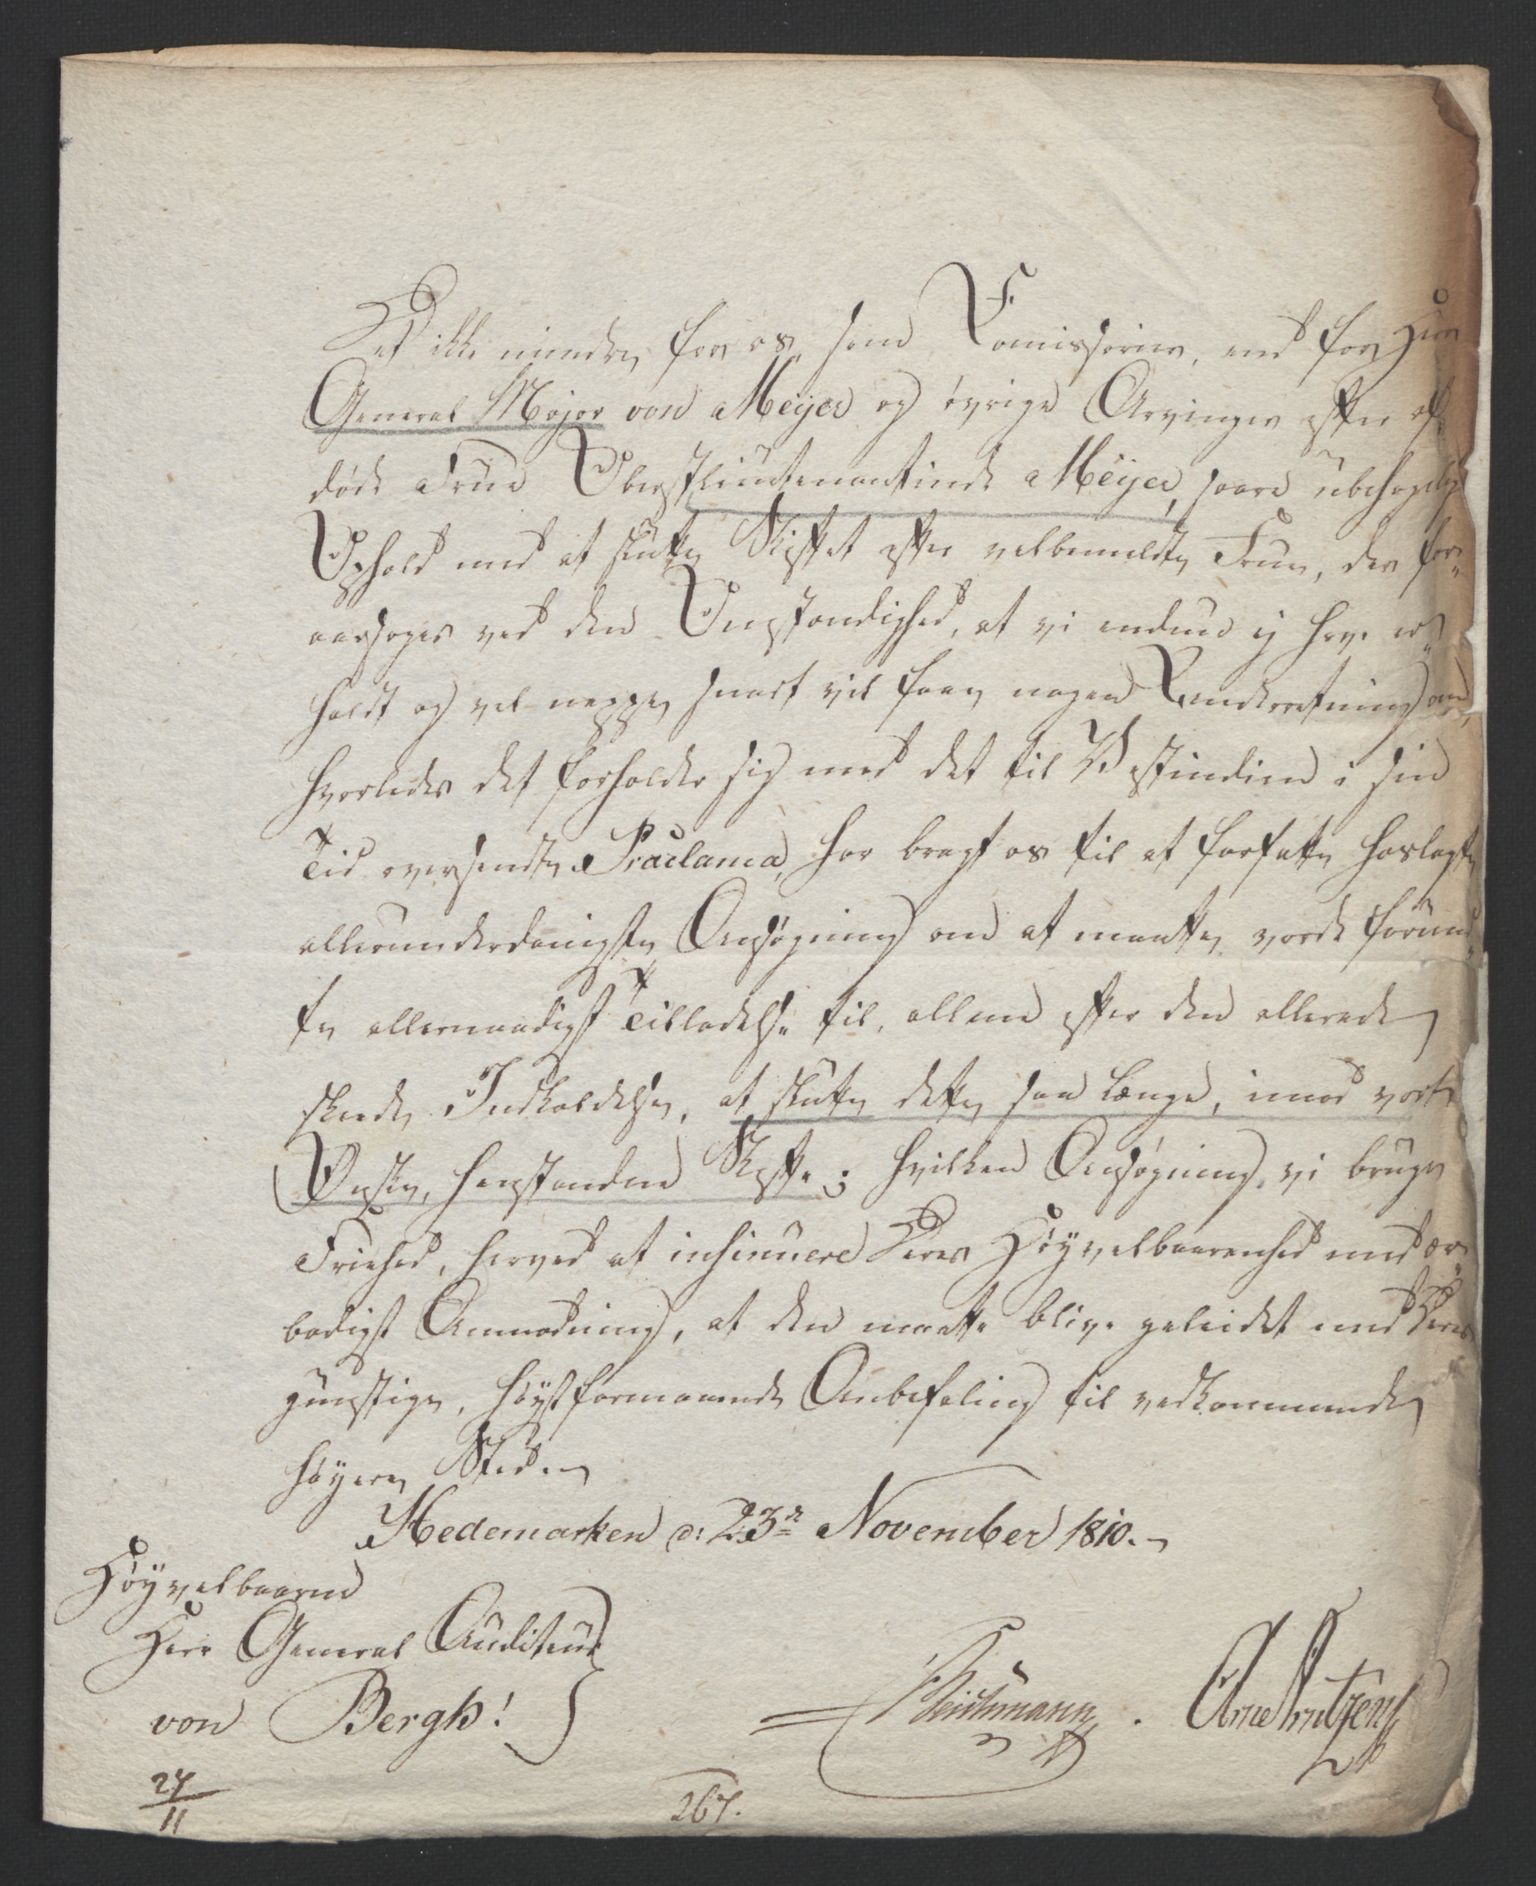 Det ikke mindre for os, som Comissarier, end for Herr
General Major von Meyer og øvrige Arvinger efter af-
døde Frue Oberstlieutenantinde Meyer, saare ubehagelig
Ophold med at slutte Skiftet efter velbemeldte Frue, der for-
aarsages ved den Omstændighed, at vi endnu ej have er-
holdt og vel neppe snart vil faae nogen Underretning om,
hvorledes det forholder sig med det til Vestindien i sin
Tid oversendte Proclama, har bragt os til at forfatte hoslagte
allerunderdanigste Ansøgning om at maatte vorde forund-
te allernaadigst Tilladelse til, allene efter den allerede
skeede Indkaldelse, at slutte dette saa længe, imod vort
Ønske, henstandne Skifte; hvilken Ansøgning, vi bruge
Friehed, herved at insinuere Deres Høyvelbaarenhed med ær-
bødigst Anmodning, at den maatte blive geleidet med Deres
gunstige, høystformaaende Anbefaling til vedkommende
høyere Steder.
Hedemarken d: 23de November 1810.
Høyvelbaarne
Herr General Auditeur
von Bergh!
Arntzen
24/11
267.